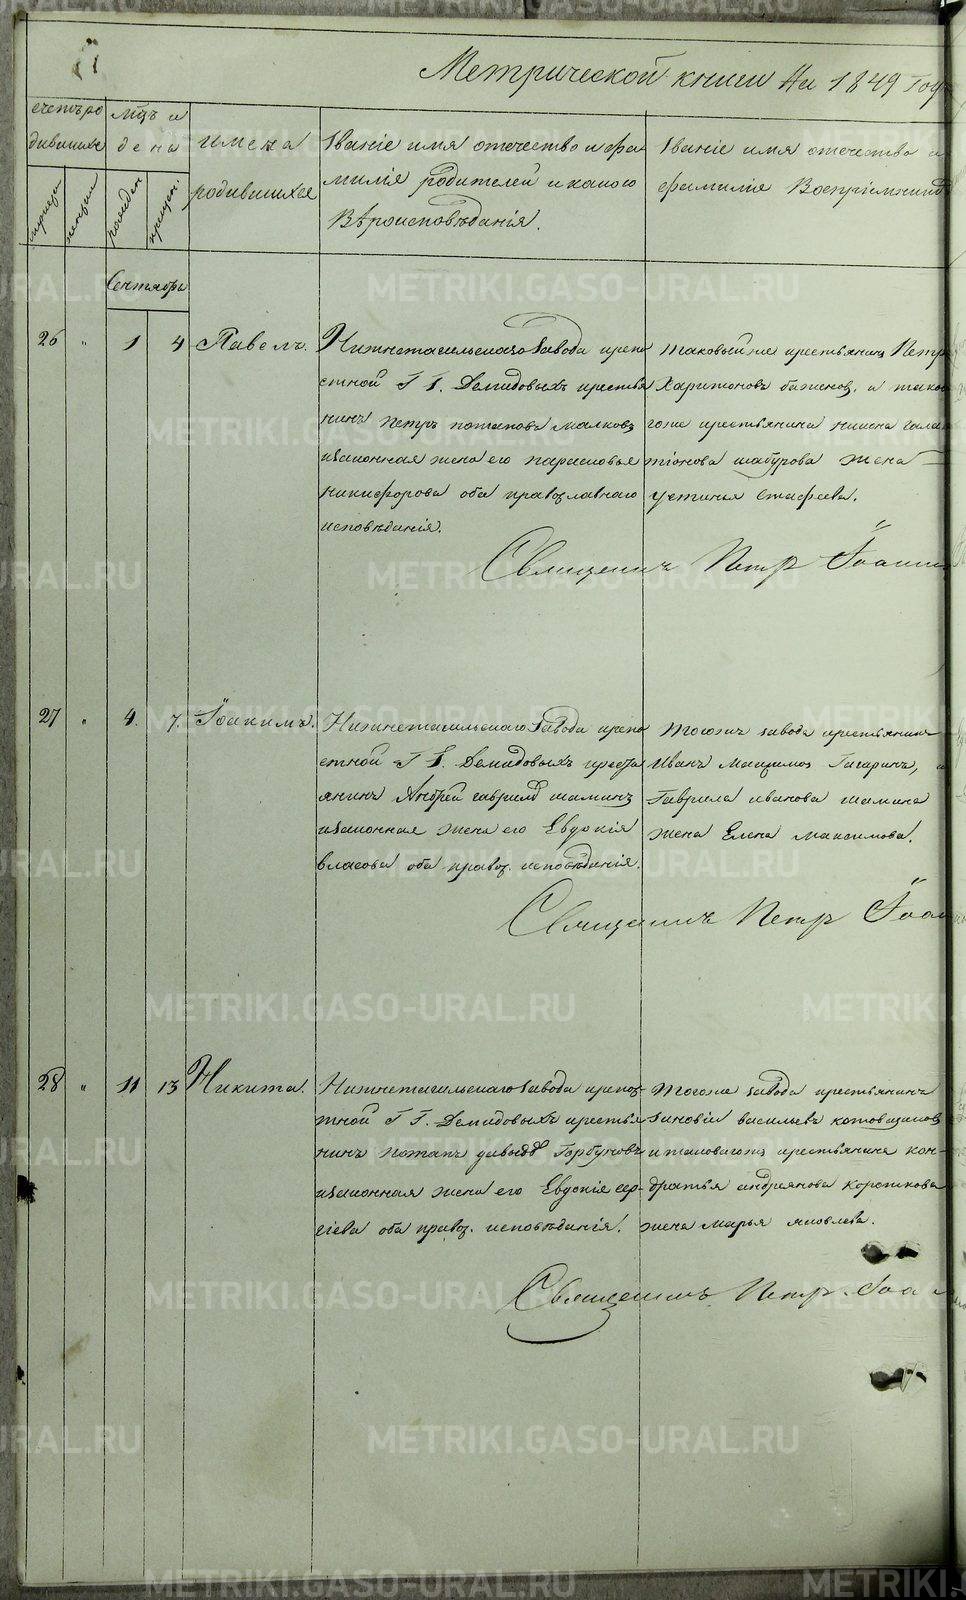 Метрической книги На 1849 Год
счетъ ро
дившихс
мцъ и
день
имена
родившихся
Званіе имя отечество и фа
милія родителей и какого
Вѣроисповѣданія.
Званіе имя отечество и
фамилія Воспріемник
рожден
крещен.
Сентябрь
26 " 1 4 Павелъ.
Нижнетагильскаго Завода крепо
стной Г Г. Демидовыхъ крестья
нинъ Петръ потаповъ малковъ
законная жена его парасковья
никифорова оба православнаго
исповѣданія.
таковый же крестьянинъ Петр
Харитоновъ баженов, и тако
гоже крестьянина
шабурова жена
устинья стафеева.
Священник Петр Іоанн
27 " 4. 7. Іоакимъ.
Нижнетагильскаго Завода крепо
стной Г Г. Демидовыхъ крестья
янинъ Андрей гаврилов шаминъ
законная жена его Евдокія
власова оба правос. исповѣданія.
тогоже завода крестьянин
Иванъ Гагаринъ, и
Гаврила иванова шамина
жена Елена максимова.
Священник Петр Іоан
28 " 11 13 Никита.
Нижнетагильскаго Завода крепос
тной Г Г. Демидовыхъ крестья
нинъ потапъ давыдов Горбуновъ
законная жена его Евдокія сер-
гіева оба правос. исповѣданія.
тогоже завода крестьянинъ
зиновій васильевъ
и таковагожъ крестьянина кон-
дратья андреянова короткова
жена марья яковлева.
Священникъ Петр Іоа
METRIKI.GASO-URAL.RU